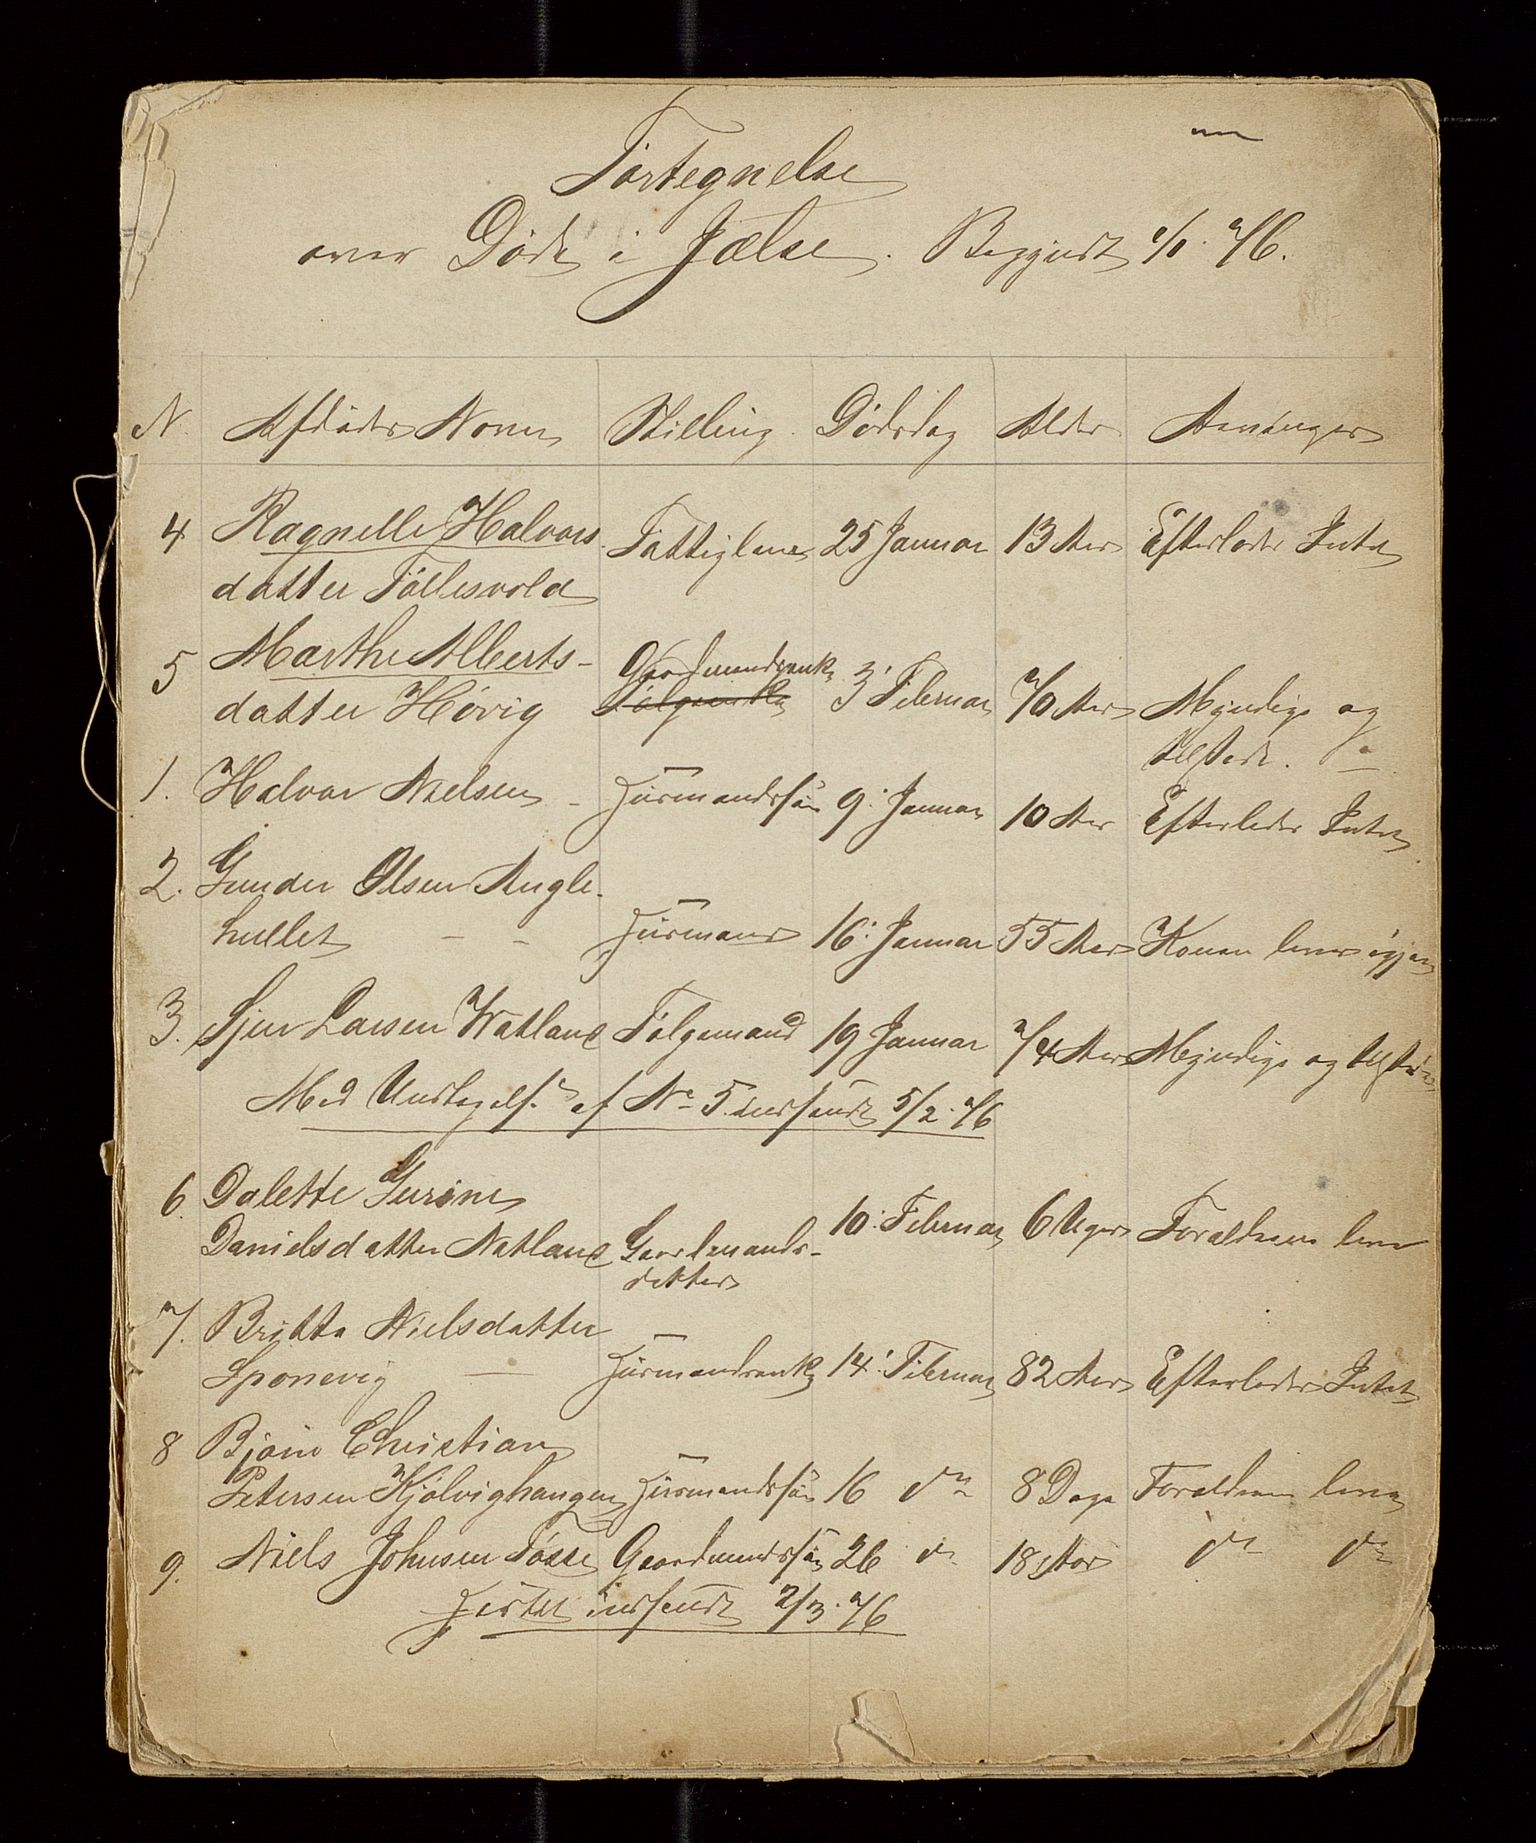 Fortegnelse
over Døde i Jælse. Begyndt 1/1. 76.
N. Afdødes Navn Stilling Dødsdag Alder Arvinger
4 Ragnelle Halvors- Fattiglem 25 Januar 13 Aar Efterlader Intet
datter Föllesvold
5 Marthe Alberts- Gaardmandsenke 3' Februar 70 Aar Myndige og
datter Hövig Følgeenke tilstede.
1. Halvor Nielsen - Huusmandssøn 9: Januar 10 Aar Efterlader Intet
2. Gunder Olsen Angle-
hullet - - Huusmand 16: Januar 55 Aar Konen lever igjen
3. Sjur Larsen Watland Følgemand 19 Januar 74 Aar Myndige og tilstede
Med Undtagelse af No 5 indsendt 5/2. 76
6. Dalette Gurine
Danielsdatter Natland Gaardmands- 10: Februar 6 Uger Forældrene leve
datter
7. Britta Nielsdatter
Sponevig - Huusmandsenke 14: Februar 82 Aar Efterlader Intet
8 Bjørn Christian
Petersen Kjölvighaugen Huusmandssøn 16 do 8 Dage Forældrene leve
9. Niels Johnsen Fosse Gaardmandssøn 26 do 18 Aar do do
Hertil indsendt 2/3. 76